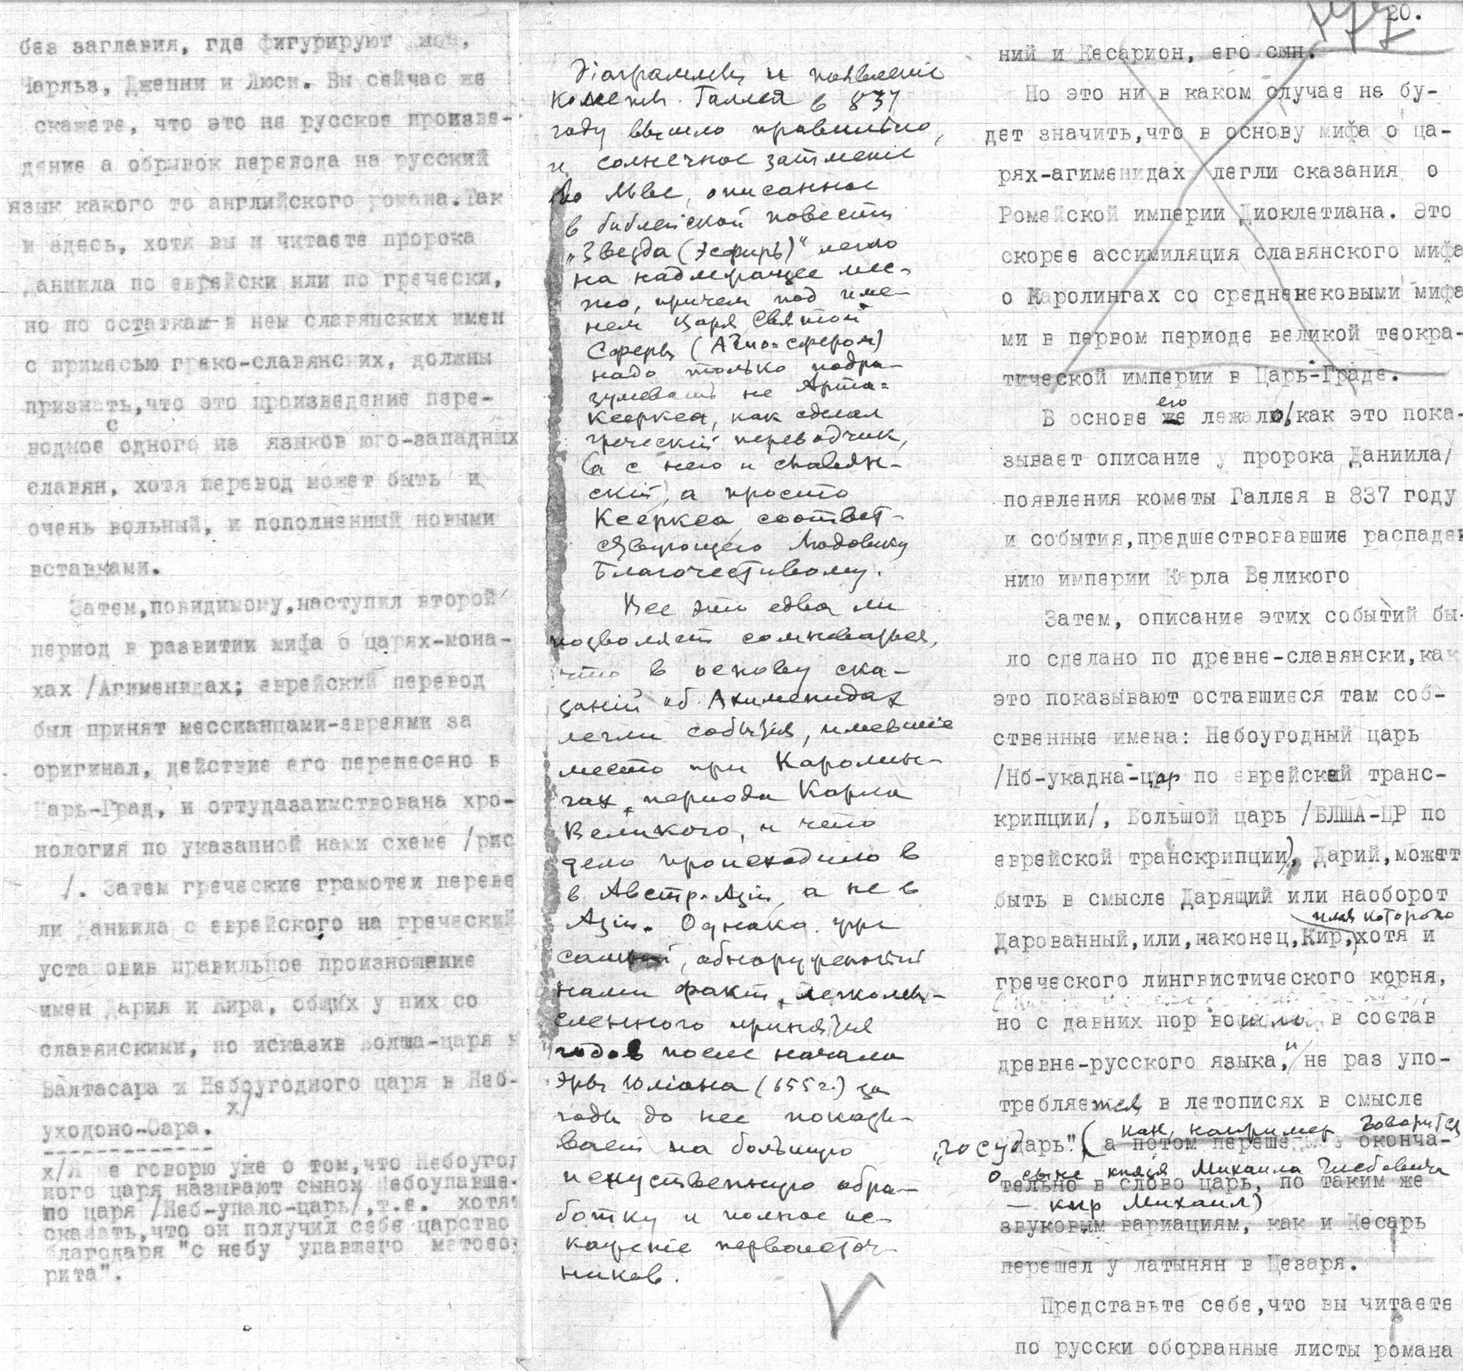 без заглавия, где фигурируют
Чарльз, Дженни и Люси. Вы сейчас же
скажете, что это не русское произве-
дение а обрывок перевода на русский
язык какого то английского романа. Так
и здесь, хотя вы и читаете пророка
Даниила по еврейски или по гречески,
но по остаткам в нем славянских имен
с примесью греко-славянских, должны
признать, что это произведение пере-
водное с одного из языков юго-западных
славян, хотя перевод может быть и
очень вольный, и пополненный новыми
вставками.
Затем, повидимому, наступил второй
период в развитии мифа о царях-мона-
хах /Агименидах; еврейский перевод
был принят мессианцами-евреями за
оригинал, действие его перенесено в
Царь-Град, и оттуда заимствована хро-
нология по указанной нами схеме /рис
/. Затем греческие грамотеи переве
ли Даниила с еврейского на греческий
установив правильное произношение
имен Дария и Кира, общих у них со
славянскими, но исказив Болша-царя в
Валтасара и Небоугодного царя в Наб-
уходоно-Сара. х/
х/Я не говорю уже о том, что Небоугод
ного царя называют сыном Небоупавше-
по царя /Неб-упало-царь/, т.е. хотят
сказать, что он получил себе царство
благодаря "с небу упавшего метео
рита".
Диаграммы и появление
Кометы Галлея в 837
году вышло правильно,
и солнечное затмение
во Льве, описанное
в библейской повести
„Звезда (Эсфирь)" легло
на надлежащее мес-
то, причем под име-
нем царя Святой
Сферы (Агио-сфером)
надо только подра-
зумевать не Арта-
Ксеркса, как сделал
греческий переводчик,
(а с него и славян-
ский, а просто
Ксеркса соответ-
ствующего Людовику
Благочестивому.
Все это едва ли
позволяет сомневаться,
что в основу ска-
заний об Ахименидах
легли события, имевшие
место при Каролин-
гах, периода Карла
Великого, и что
дело происходило в
в Австр-Азии, а не в
Азии. Однако уже
самый, обнаруженный
нами факт, легкомы-
сленного принятия
годов после начала
Эры Юлиана (655 г.) за
года до нее показы-
вает на большую
искуственную обра-
ботку и полное ис-
кажение первоисточ-
ников.
20.
ний и Кесарион, его сын.
Но это ни в каком случае не бу-
дет значить, что в основу мифа о ца-
рях-агименидах легли сказания о
Ромейской империи Диоклетиана. Это
скорее ассимиляция славянского мифа
о Каролингах со средневековыми мифа
ми в первом периоде великой теокра-
тической империи в Царь-Граде.
В основе его же лежало/как это пока-
зывает описание у пророка Даниила/
появления кометы Галлея в 837 году
и события, предшествовавшие распаде
нию империи Карла Великого
Затем, описание этих событий бы-
ло сделано по древне-славянски, как
это показывают оставшиеся там соб-
ственные имена: Небоугодный царь
/Нб-укадна-цар по еврейской транс-
крипции/, Большой царь /БЛША-ЦР по
еврейской транскрипции), Дарий, может
быть в смысле Дарящий или наоборот
Дарованный, или, наконец, Кир, имя которого хотя и
греческого лингвистического корня,
но с давних пор вошло в состав
древне-русского языка, и не раз упо-
требляется в летописях в смысле
„государь". (как, например говорится
а потом перешел в оконча-
о сыне князя Михаила Глебовича
тельно в слово царь, по таким же
— кир Михаил)
звуковым вариациям, как и Кесарь
перешел у латынян в Цезаря.
Представьте себе, что вы читаете
по русски оборванные листы романа